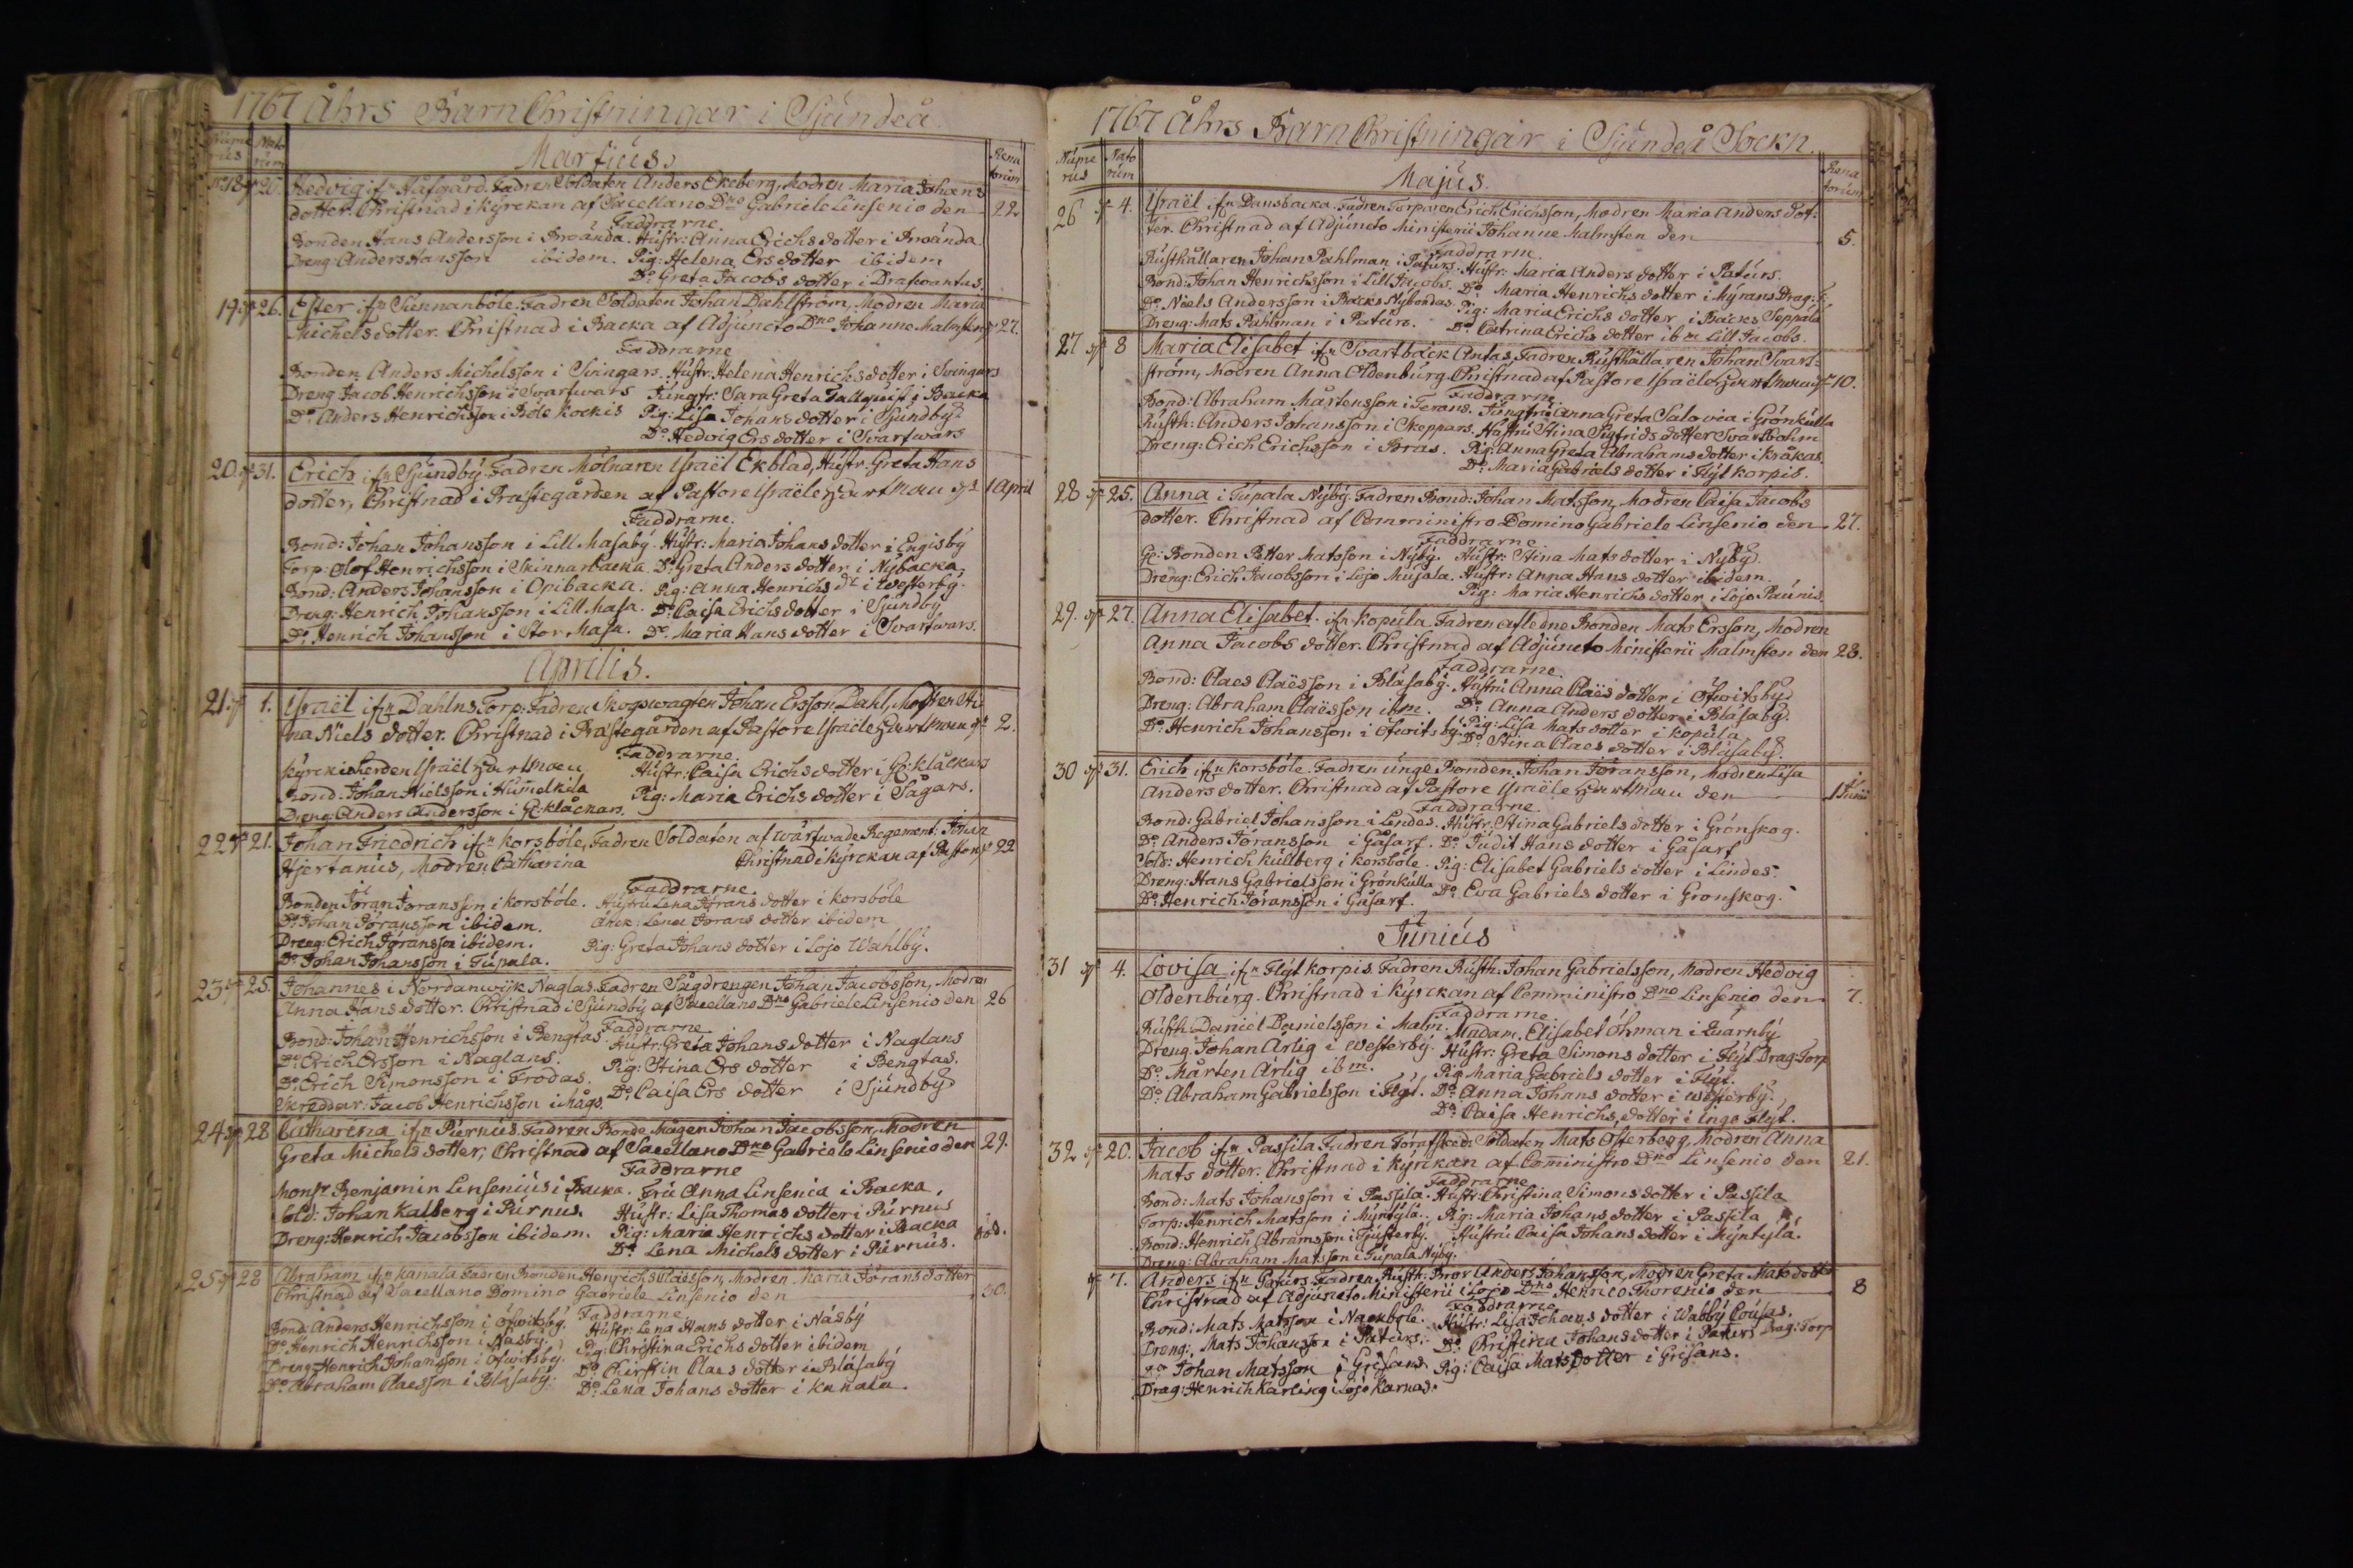 1767 Åhrs Barn Christningar i Sjundeå
Nume rus
Nato rum
Martius.
Rena torum
No 18 d. 20. Hedvig ifrn Håfgård. Fadren Soldaten Anders Ekeberg, Modren Maria Johans
dotter. Christnad i kyrckan af Sacellano Dno Gabriele Linsenio den 22.
Faddrarne.
Bonden Hans Andersson i Broända. Hustr: Anna Erichs dotter i Broända
Dreng: Anders Hansson ibidem. Pig: Helena Ers dotter ibidem
Do Greta Jacobs dotter i
19. d. 26. Ester ifrn Sunnanböle. Fadren Soldaten Johan Dahlström, Modren Maria
Michels dotter. Christnad i Backa af Adjuncto Dno Johanne Malmsten d. 27.
Faddrarne
Bonden Anders Michelsson i Svingars. Hustr: Helena Henrichs dotter i Svingars
Dreng Jacob Henrichsson i Svartvars Jungfr: Sara Greta Tallquist i Backa
Do Anders Henrichsson i Böle Kockis Pig: Lisa Johans dotter i Sjundby
Do Hedvig Ers dotter i Svartvars
20. d. 31. Erich ifrn Sjundby. Fadren Mölnaren Israël Ekblad, Hustr. Greta Hans
dotter, Christnad i Prästegården af Pastore Israële Hartman d. 1 April
Faddrarne.
Bond: Johan Johansson i Lill Masaby. Hustr: Maria Johans dotter i Engisby
Torp: Olof Henrichsson i Skinnarbacka. Do Greta Anders dotter i Nybacka,
Bond: Anders Johansson i Opibacka. Pig: Anna Henrichs dr i Westerby.
Dreng: Henrich Johansson i Lill Masa. Do Caisa Erichs dotter i Sjundby
Do Henrich Johansson i Stor Masa. Do Maria Hans dotter i Svartvars.
Aprilis.
21. d. 1. Israël ifrn Dahlns Torp. Fadren Skogswagten Johan Ersson Dahl, Modren Sti
na Niels dotter. Christnad i Prästegården af Pastore Israële Hartman d. 2.
Faddrarne.
Kyrckioherden Israël Hartman Hustr: Caisa Erichs dotter i Gr: klåckars
Bond: Johan Nielsson i Humelkila Pig: Maria Erichs dotter i Sågars.
Dreng: Anders Andersson i Gr: klåckars.
22 d. 21. Johan Friedrich ifrn Korsböle, Fadren Soldaten af wärfwade Regement: Johan
Hjertanius, Modren Catharina Christnad i kyrckan af Pastore d. 22
Faddrarne.
Bonden Jöran Jöransson i Korsböle. Hustru Lena Jörans dotter i Korsböle
Do Johan Jöransson ibidem. Änk: Lena Jörans dotter ibidem
Dreng: Erich Jöransson ibidem. Pig: Greta Johans dotter i Lojo Wahlby.
Do Johan Johansson i Tupala.
23 d. 25. Johannes i Nordanwijk Naglas. Fadren Sågdrengen Johan Jacobsson, Modren
Anna Hans dotter. Christnad i Sjundby af Sacellano Dno Gabriele Linsenio den 26
Faddrarne
Bond: Johan Henrichsson i Bengtas Hustr: Greta Johans dotter i Naglans
Do Erich Ersson i Naglans. Pig: Stina Ers dotter i Bengtas.
Do Erich Simonsson i Frodas. Do Caisa Ers dotter i Sjundby
Skreddar: Jacob Henrichsson i Mågs.
24 d. 28 Catharina ifrn Purnus. Fadren Bonde Mågen Johan Jacobsson, Modren
Greta Michels dotter, Christnad af Sacellano Dno Gabriele Linsenio den 29.
Faddrarne
Monsr Benjamin Linsenius i Backa. Fru Anna Linsenia i Backa,
Sold: Johan Kalberg i Purnus. Hustr: Lisa Thomas dotter i Purnus
Dreng: Henrich Jacobsson ibidem. Pig: Maria Henrichs dotter i Backa
Do Lena Michels dotter i Purnus.
25 d. 28 Abraham ifrn Kanala Fadren Bonden Henrich Claësson, Modren Maria Jörans dotter
Christnad af Sacellano Domino Gabriele Linsenio den 30.
Faddrarne
Bond: Anders Henrichsson i Öfwitsby. Hustr: Lena Hans dotter i Näsby
Do Henrich Henrichsson i Näsby. Pig: Christina Erichs dotter ibidem
Dreng: Henrich Johansson i Öfwitsby. Do Chirstin Claes dotter i Blåsaby
Do Abraham Claesson i Blåsaby. Do Lena Johans dotter i Kanala.
1767 Åhrs Barn Christningar i Sjundeå Sockn.
Nume rus
Nato rum
Majus.
Rena torum
26 d. 4. Israël ifrn Dansbacka. Fadren Torparen Erich Erichsson, Modren Maria Anders dot:
ter. Christnad af Adjuncto Ministerii Johanne Malmsten den 5.
Faddrarne.
Rusthållaren Johan Pahlman i Paturs. Hustr: Maria Anders dotter i Paturs.
Bond: Johan Henrichsson i Lill Jacobs. Do Maria Henrichs dotter i Myrans Drag: T.
Do Niels Andersson i Backs Nybondas. Pig: Maria Erichs dotter i Backs Seppälä
Dreng: Mats Pahlman i Paturs. Do Catrina Erichs dotter ibm Lill Jacobs.
27 d. 8 Maria Elisabet ifrn Svartbäck Antas. Fadren Rusthållaren Johan Svart:
ström, Modren Anna Oldenburg. Christnad af Pastore Israële Hartman d. 10.
Faddrarne.
Bond: Abraham Mårtensson i Terans. Jungfru Anna Greta Salovia i Grönkulla
Rusth: Anders Johansson i Skeppars. Hustru Stina Sigfrids dotter Svartbohm
Dreng: Erich Erichsson i Bras. Pig: Anna Greta Abrahams dotter i Kråkas
Do Maria Gabriels dotter i Flyt korpis.
28 d. 25. Anna i Tupala Nyby. Fadren Bond: Johan Matsson, Modren Caisa Jacobs
dotter. Christnad af Comministro Domino Gabriele Linsenio den 27.
Faddrarne
Gr: Bonden Petter Matsson i Nyby. Hustr: Stina Mats dotter i Nyby
Dreng: Erich Jacobsson i Lojo Musala. Hustr: Anna Hans dotter ibidem.
Pig: Maria Henrichs dotter i Lojo Paunis.
29. d. 27. Anna Elisabet ifrn Kopula Fadren afledne Bonden Mats Ersson, Modren
Anna Jacobs dotter. Christnad af Adjuncto Ministerii Malmsten den 28.
Faddrarne.
Bond: Claes Claësson i Blåsaby. Hustru Anna Claës dotter i Öfwitsby
Dreng: Abraham Claësson ibm. Do Anna Anders dotter i Blåsaby.
Do Henrich Johansson i Öfwitsby. Pig: Lisa Mats dotter i Kopula
Do Stina Claes dotter i Blåsaby.
30 d. 31. Erich ifrn Korsböle. Fadren unge Bonden Johan Jöransson, Modren Lisa
Anders dotter. Christnad af Pastore Israële Hartman den 1 Junii
Faddrarne.
Bond: Gabriel Johansson i Lindes. Hustr: Stina Gabriels dotter i Grönskog.
Do Anders Jöransson i Gåsarf. Do Judit Hans dotter i Gåsarf
Sold: Henrich Kullberg i Korsböle. Pig: Elisabet Gabriels dotter i Lindes.
Dreng: Hans Gabrielsson i Grönkulla Do Eva Gabriels dotter i Grönskog.
Do Henrich Jöransson i Gåsarf.
Junius
31 d. 4. Lovisa ifrn Flyt korpis Fadren Rusth: Johan Gabrielsson, Modren Hedvig
Oldenburg. Christnad i kyrckan af Comministro Dno Linsenio den 7.
Faddrarne.
Rusth: Daniel Danielsson i Malm. Madam. Elisabet Öhman i Quarnby
Dreng: Johan Ärlig i Westerby. Hustr: Greta Simons dotter i Flyt Drag: Torp
Do Mårten Ärlig ibm. Pig Maria Gabriels dotter i Flyt.
Do Abraham Gabrielsson i Flyt. Do Anna Johans dotter i Westerby.
Do Caisa Henrichs dotter i Inge Flyt.
32 d. 20. Jacob ifrn Passila Fadren förafskedt Soldaten Mats Österberg, Modren Anna
Mats dotter. Christnad i kyrckan af Cominstro Dno Linsenio den 21.
Faddrarne
Bond: Mats Johansson i Passila. Hustr: Christina Simons dotter i Passila
Torp: Henrich Matsson i Myntylä. Pig: Maria Johans dotter i Passila
Bond: Henrich Abramsson i Tjusterby. Hustru Caisa Johans dotter i Myntylä.
Dreng: Abraham Matsson i Tupala Nyby.
d. 7. Anders ifrn Paturs. Fadren Rusth: Bror Anders Johansson, Modren Greta Mats dotter
Christnad af Adjuncto Ministerii i Lojo Dno Henrico Thorenio den 8
Faddrarne
Bond: Mats Matsson i Nackböle. Hustr: Lisa Johans dotter i Wabby Cousas.
Dreng: Mats Johansson i Paturs. Do Christina Johans dotter i Paturs Drag: Torp
Do Johan Matsson i Grisans. Pig: Caisa Mats dotter i Grisans.
Drag: Henrich Karling i Lojo Karnas.